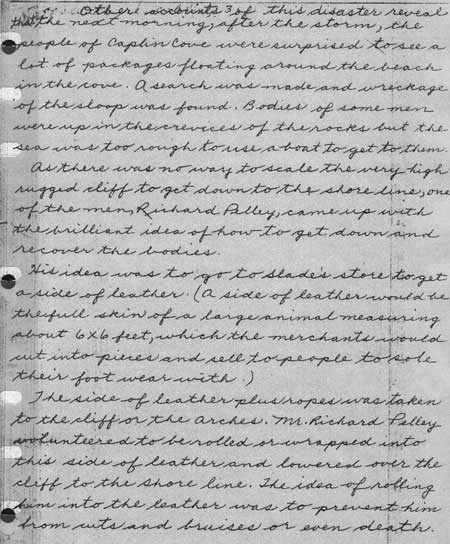 Other accounts 3 of this disaster reveal
that the next morning, after the storm, the
people of Caplin Cove were surprised to see a
lot of packages floating around the beach
in the cove. A search was made and wreckage
of the sloop was found. Bodies of some men
were up in the crevices of the rocks but the
sea was too rough to use a boat to get to them.
As there was no way to scale the very high
rugged cliff to get down to the shore line, one
of the men, Richard Pelley, came up with
the brilliant idea of how to get down and
recover the bodies.
His idea was to go to Slade's store to get
a side of leather. (A side of leather would be
the full skin of a large animal measuring
about 6x6 feet, which the merchants would
cut into pieces and sell to people to sole
their foot wear with.)
The side of leather plus ropes was taken
to the cliff or the arches. Mr. Richard Pelley
volunteered to be rolled or wrapped into
this side of leather and lowered over the
cliff to the shore line. The idea of rolling
him into the leather was to prevent him
from cuts and bruises or even death.